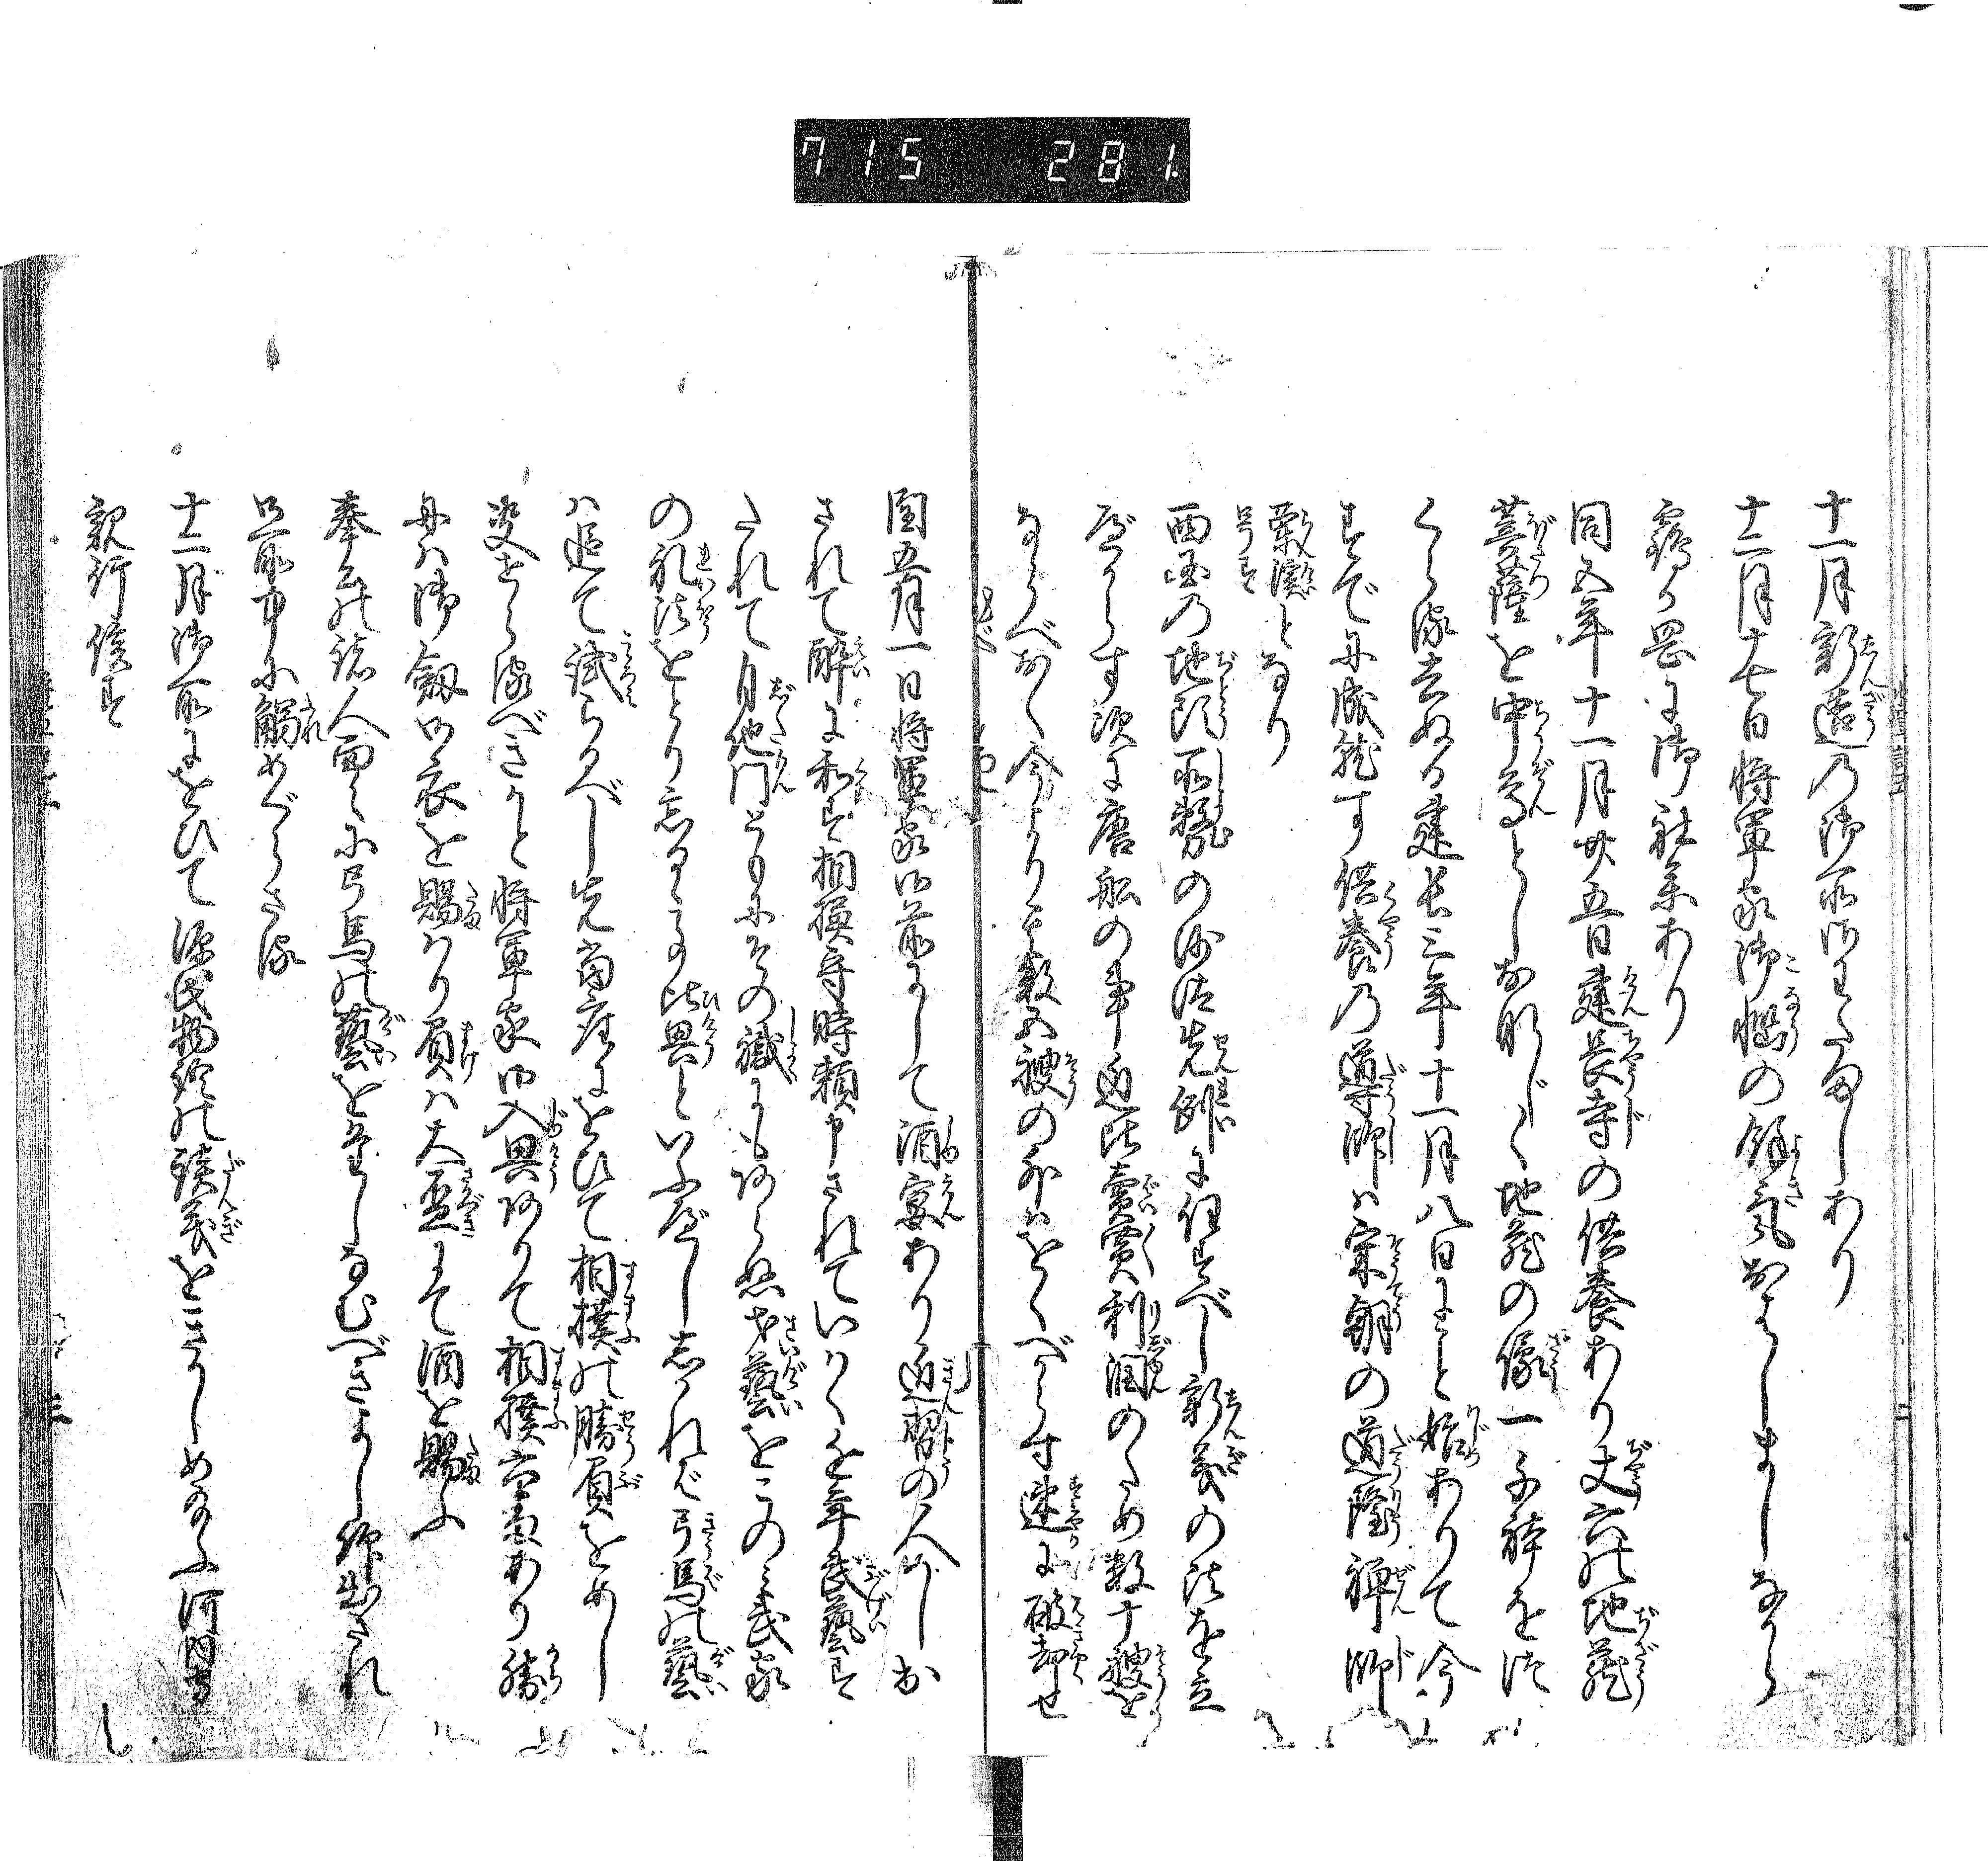 715 281
十一月新造の御所御わたましあり
十二月十七日将軍家御悩の餘気おはしましなから
鶴か岡に御社参あり
同五年十一月廿五日建長寺の供養あり丈六の地蔵
菩薩を中尊としおなしく地蔵の像一千体をつ
くらる去ぬる建長三年十一月八日にこと始ありて今
すでに成就す供養の導師は宋朝の道隆禅師
と号す
西国の地頭所務の沙汰先例に任すべし新義の法を立
べからす次に唐船の事近比売買利潤のため数十艘を
ならべおく今より其数五艘の外はをくべからす速に破却せ
閏五月一日将軍家御前にして酒宴あり近習の人めしお
されて酔に和す相模守時頼申されていはく近年武藝す
たれて自他門ともにその職にもあらぬ才藝をこのみ武家
の礼法をとり忘るる事比興といふべししかれば弓馬の藝
は追て試らるべし先当座にをひて相撲の勝負をめし
決せらるべきかと将軍家御入興ありて相撲六番あり勝
には御剱御衣を賜はり負は大盃にて酒を賜ふ
奉公の諸人面々に弓馬の藝をたしなむべきよし仰出され
御所中に觸めぐらさる
十二月御所にをひて源氏物語の談義をきこしめさる河内守
親行候す